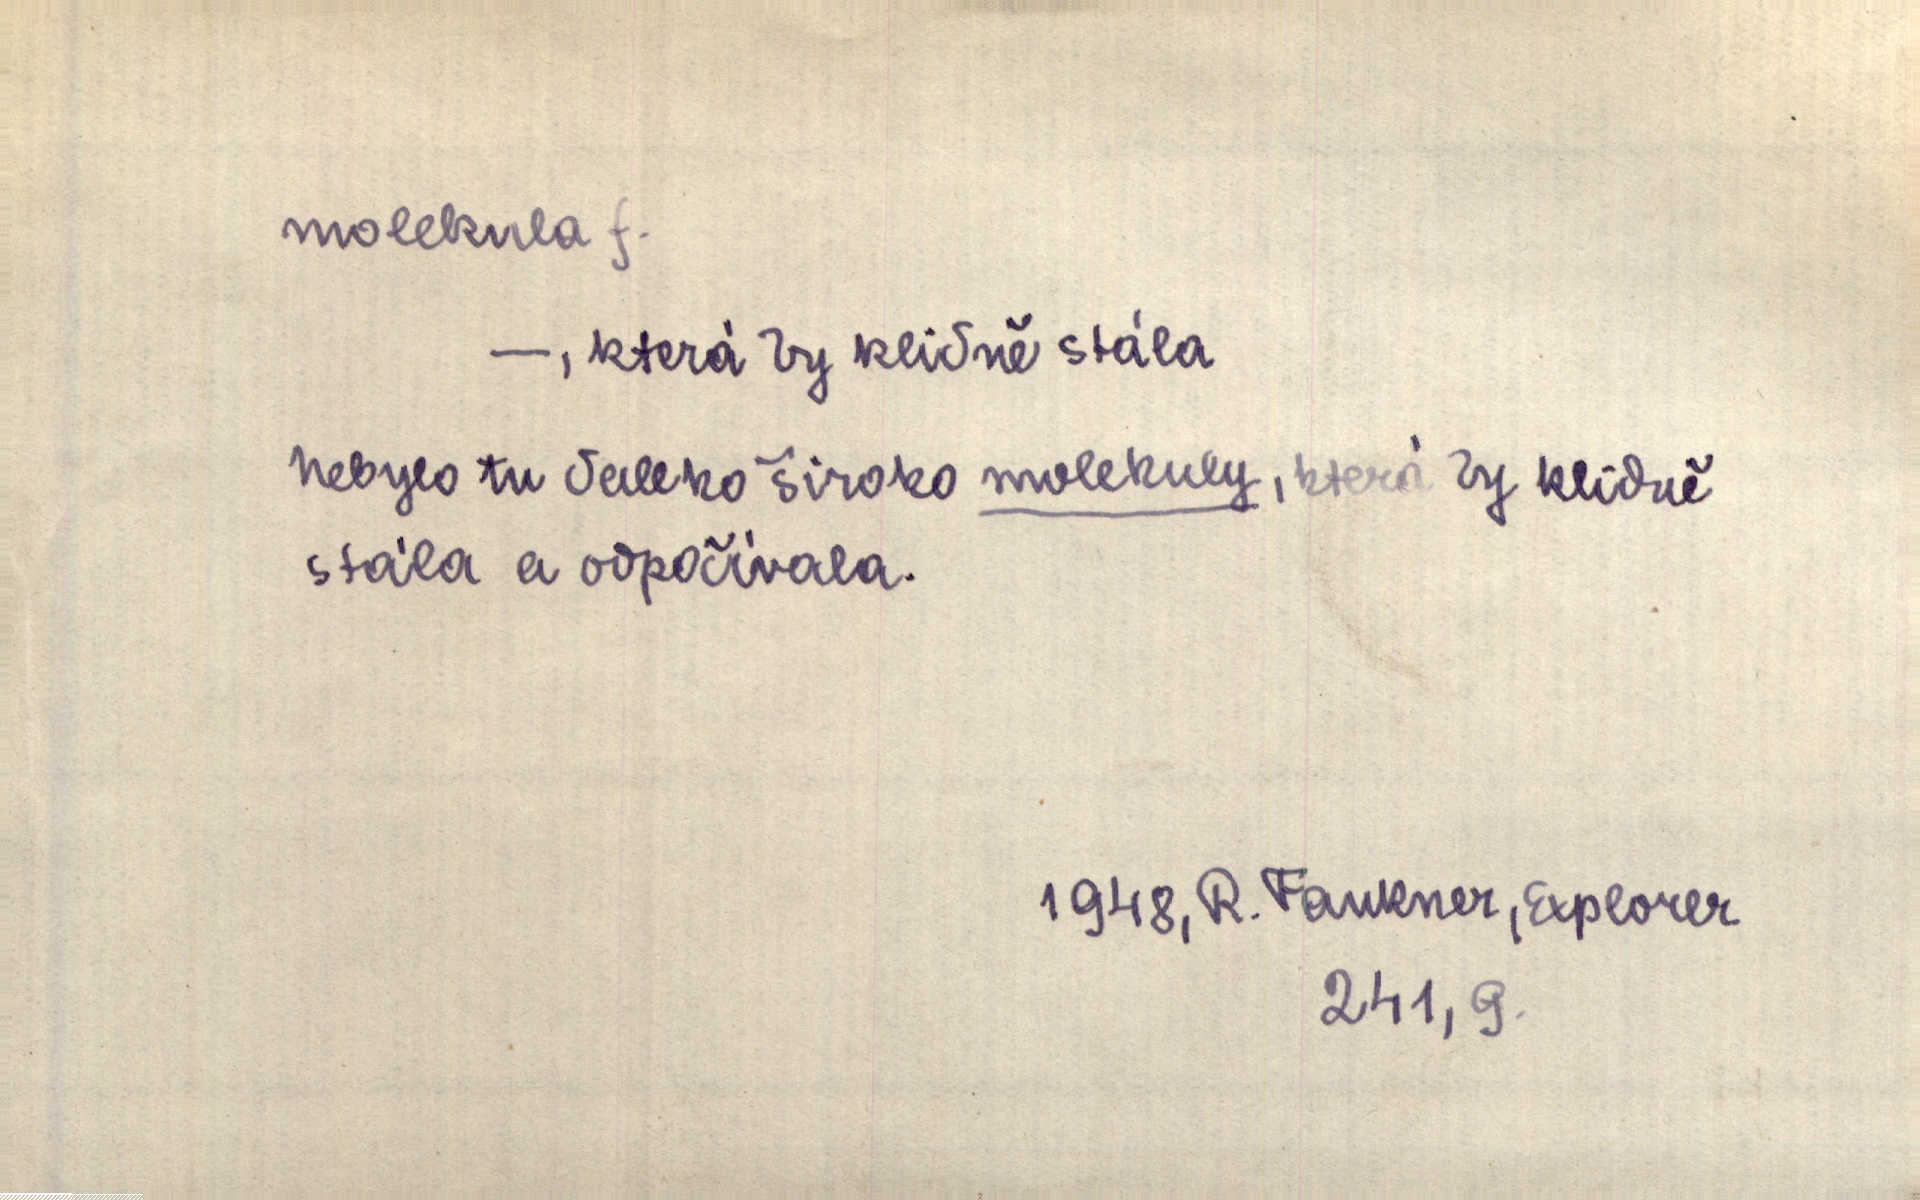 molekula f.
—, která by klidně stála
Nebylo tu daleko široko molekuly, která by klidně
stála a odpočívala.
1948, R. Faukner, Explorer
241, 9.